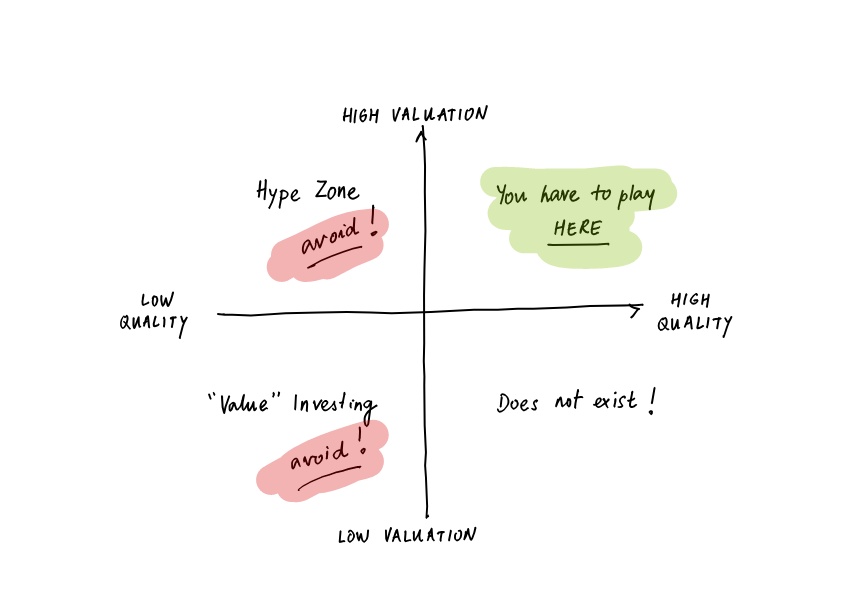 HIGH VALUATION
Hype Zone
avoid!
You have to play
HERE
LOW
QUALITY
HIGH
QUALITY
"Value" Investing
avoid!
Does not exist!
LOW VALUATION